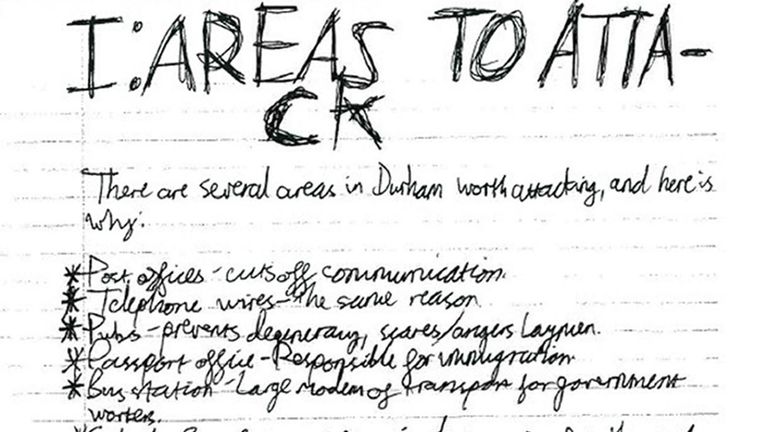 I: AREAS TO ATTA-
CK
There are several areas in Durham worth attacking, and here is
why:
* Post offices - cuts off communication.
* Telephone wires - the same reason
* Pubs - prevents degeneracy, scares/angers Laymen.
* Passport office - Responsible for immigration
* Bus station - Large modem of transport for government
workers.